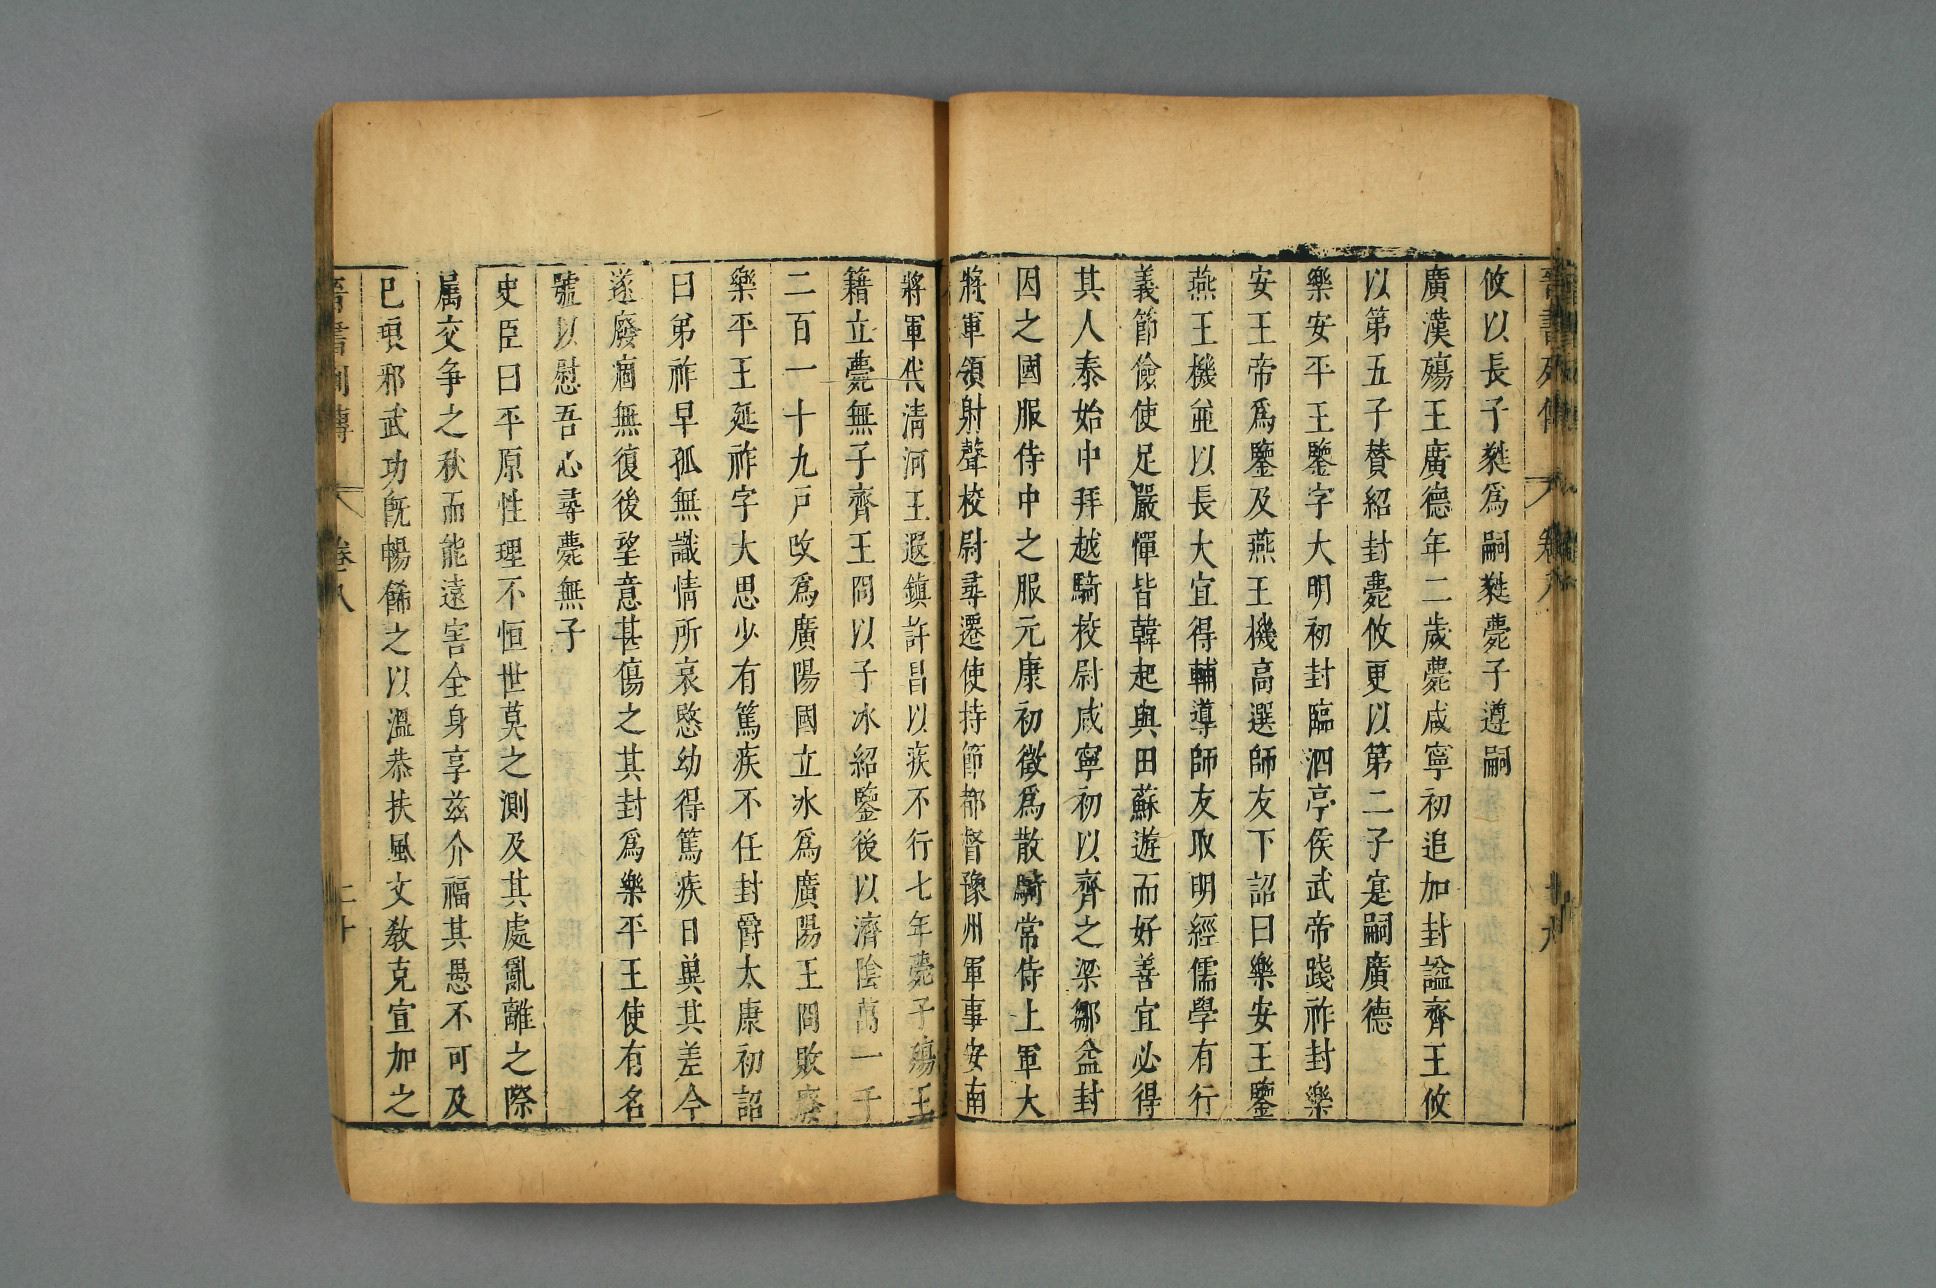 晉書列傳 卷八 十九
攸以長子蕤爲嗣蕤薨子遵嗣
廣漢殤王廣德年二歲薨咸寧初追加封謚齊王攸
以第五子賛紹封薨攸更以第二子寔嗣廣德
樂安平王鑒字大明初封臨泗亭侯武帝踐祚封樂
安王帝爲鑒及燕王機高選師友下詔曰樂安王鑒
燕王機並以長大宜得輔導師友取明經儒學有行
義節儉使足嚴憚皆韓起與田蘇遊而好善宜必得
其人泰始中拜越騎校尉咸寧初以齊之梁鄒益封
因之國服侍中之服元康初徵爲散騎常侍上軍大
將軍領射聲校尉尋遷使持節都督豫州軍事安南
將軍代清河王遐鎮許昌以疾不行七年薨子殤王
籍立薨無子齊王冏以子冰紹鑒後以濟陰萬一千
二百一十九戸改爲廣陽國立冰爲廣陽王冏敗廢
樂平王延祚字大思少有篤疾不任封爵太康初詔
曰弟祚早孤無識情所哀愍幼得篤疾日冀其差今
遂廢痼無復後望意甚傷之其封爲樂平王使有名
號以慰吾心尋薨無子
史臣曰平原性理不恒世莫之測及其處亂離之際
属交争之秋而能遠害全身享兹介福其愚不可及
巳琅邪武功旣暢飾之以溫恭扶風文教克宣加之
晉書列傳 卷八 二十